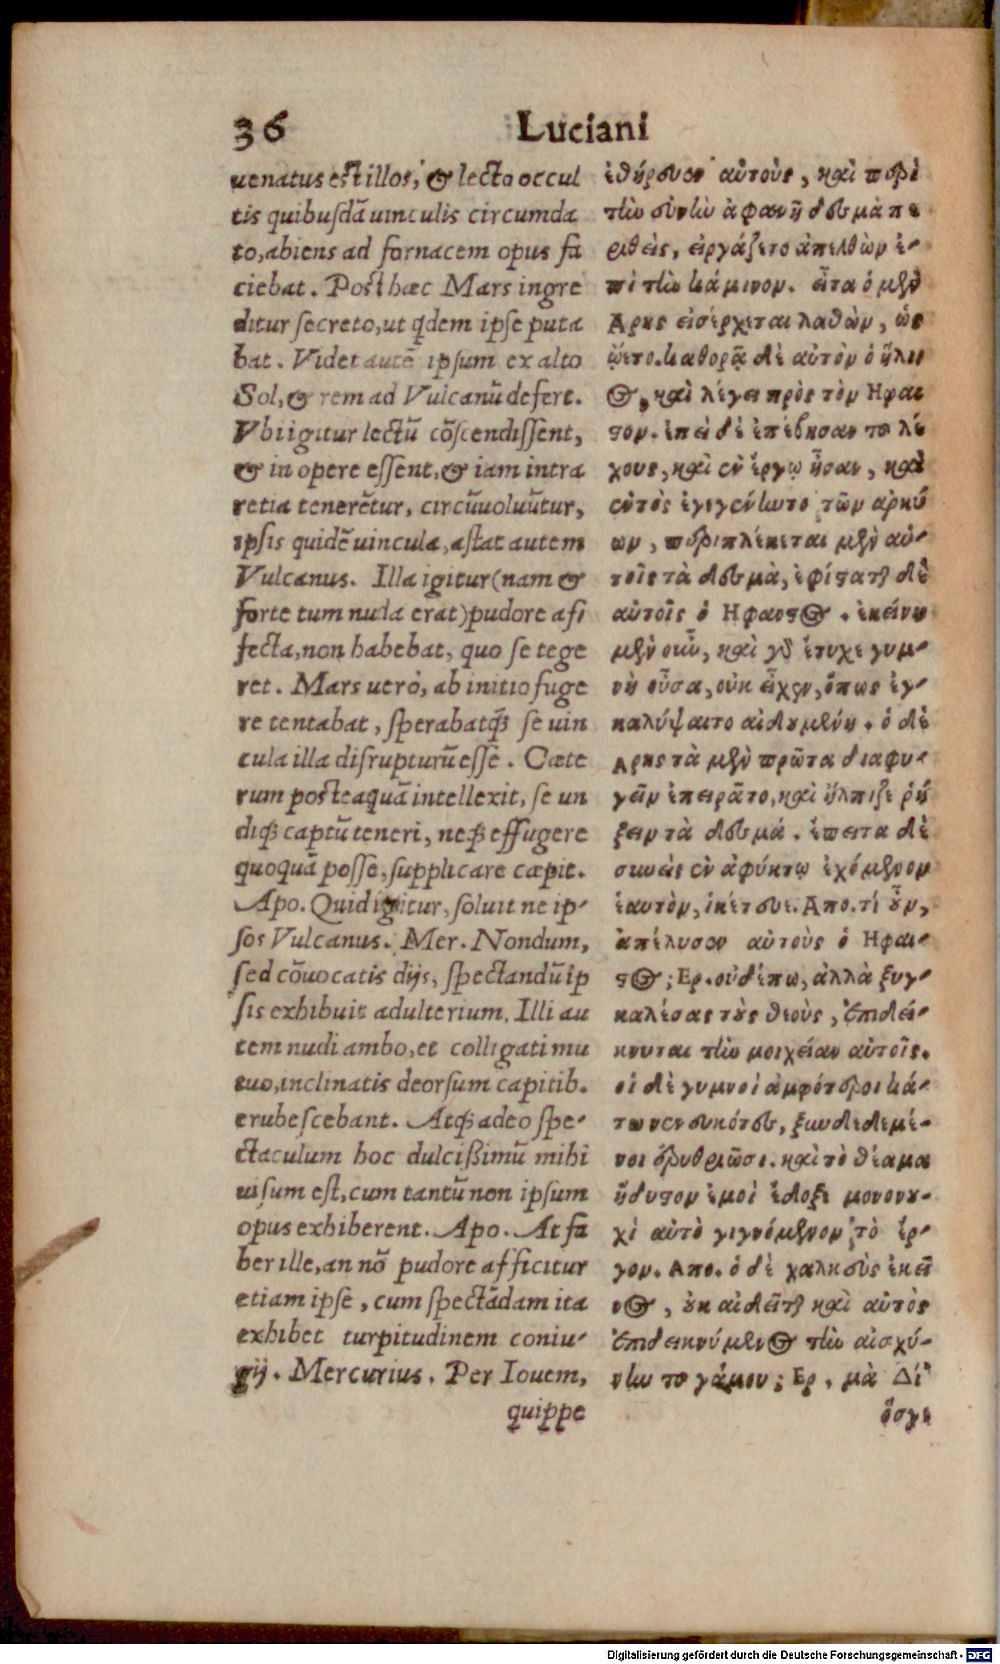 36 Luciani
uenatus est illos, & lecto occul
tis quibusdā uinculis circumda
to, abiens ad fornacem opus fa
ciebat. Post hæc Mars ingre
ditur secreto, ut q̃dem ipse puta
bat. Videt autē ipsum ex alto
Sol, & rem ad Vulcanū defert.
Vbi igitur lectū cōscendissent,
& in opere essent, & iam intra
retia tenerētur, circūuoluūtur,
ipsis quidē uincula, astat autem
Vulcanus. Illa igitur (nam &
forte tum nuda erat) pudore affi
fecta, non habebat, quo se tege
ret. Mars uerò, ab initio fuge
re tentabat, sperabatq́; se uin
cula illa disrupturū esse. Cæte
rum posteaquā intellexit, se un
diq; captū teneri, neq; effugere
quoquā posse, supplicare cœpit.
Apo. Quid igitur, soluit ne ip-
sos Vulcanus. Mer. Nondum,
sed cōuocatis dijs, spectandū ip
sis exhibuit adulterium. Illi au
tem nudi ambo, et colligati mu
tuo, inclinatis deorsum capitib.
erubescebant. Atq; adeo spe-
ctaculum hoc dulcißimū mihi
uisum est, cum tantū non ipsum
opus exhiberent. Apo. At fa
ber ille, an nō pudore afficitur
etiam ipse, cum spectādam ita
exhibet turpitudinem coniu-
gij. Mercurius. Per Iouem,
quippe
ἐθήρευσεν αὐτοὺς, καὶ περὶ
τὴν εὐνὴν ἀφανῆ δεσμὰ πε
ριθεὶς, εἰργάζετο ἀπελθὼν ἐ-
πὶ τὴν κάμινον. εἶτα ὁ μὲν
Αρης εἰσέρχεται λαθὼν, ὡς
ᾤετο. καθορᾷ δὲ αὐτὸν ὁ ἥλι
ος, καὶ λέγει πρὸς τὸν Ηφαι
στον. ἐπεὶ δὲ ἐπέβησαν τοῦ λέ
χους, καὶ ἐν ἔργῳ ἦσαν, καὶ
ἐντὸς ἐγεγένηντο τῶν ἀρκύ
ων, περιπλέκεται μὲν αὐ-
τοῖς τὰ δεσμὰ, ἐφίσταται δὲ
αὐτοῖς ὁ Ηφαιστος. ἐκείνη
μὲν οὖν, καὶ γὰρ ἔτυχε γυμ-
νὴ οὖσα, οὐκ εἶχεν, ὅπως ἐγ-
καλύψαιτο αἰδουμένη. ὁ δὲ
Αρης τὰ μὲν πρῶτα διαφυ-
γεῖν ἐπειρᾶτο, καὶ ἤλπιζε ῥή
ξειν τὰ δεσμά. ἔπειτα δὲ
συνεὶς ἐν ἀφύκτῳ ἐχόμενον
ἑαυτὸν, ἱκέτευε. Απο. τί οὖν,
ἀπέλυσεν αὐτοὺς ὁ Ηφαι-
στος; Ερ. οὐδέπω, ἀλλὰ ξυγ-
καλέσας τοὺς θεοὺς, ἐπιδεί-
κνυται τὴν μοιχείαν αὐτοῖς.
οἱ δὲ γυμνοὶ ἀμφότεροι κά-
τω νενευκότες, ξυνδεδεμέ-
νοι ἐρυθριῶσι. καὶ τὸ θέαμα
ἥδιστον ἐμοὶ ἔδοξε μονονου-
χὶ αὐτὸ γιγνόμενον τὸ ἔρ-
γον. Απο. ὁ δὲ χαλκεὺς ἐκεῖ
νος, οὐκ αἰδεῖται καὶ αὐτὸς
ἐπιδεικνύμενος τὴν αἰσχύ-
νην τοῦ γάμου; Ερ. μὰ Δί'
ὅσγε
Digitalisierung gefördert durch die Deutsche Forschungsgemeinschaft - DFG